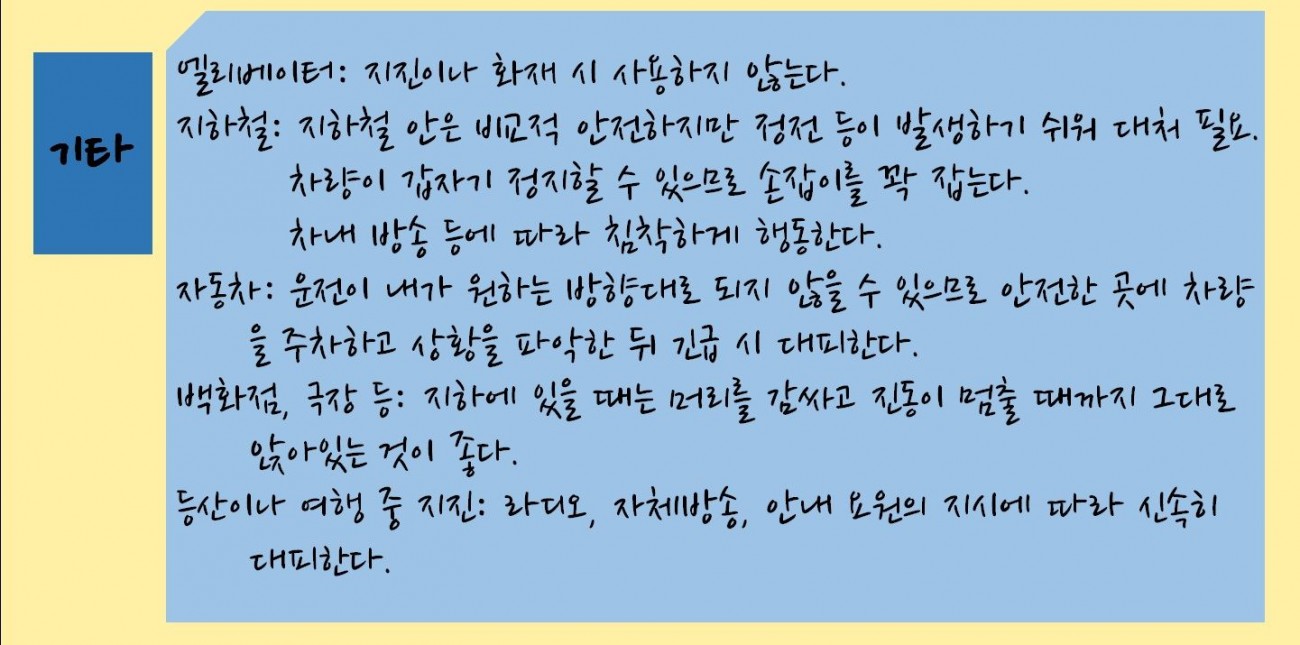 기타
엘리베이터: 지진이나 화재 시 사용하지 않는다.
지하철: 지하철 안은 비교적 안전하지만 정전 등이 발생하기 쉬워 대처 필요.
차량이 갑자기 정지할 수 있으므로 손잡이를 꽉 잡는다.
차내 방송 등에 따라 침착하게 행동한다.
자동차: 운전이 내가 원하는 방향대로 되지 않을 수 있으므로 안전한 곳에 차량
을 주차하고 상황을 파악한 뒤 긴급 시 대피한다.
백화점, 극장 등: 지하에 있을 때는 머리를 감싸고 진동이 멈출 때까지 그대로
앉아있는 것이 좋다.
등산이나 여행 중 지진: 라디오, 자체방송, 안내 요원의 지시에 따라 신속히
대피한다.